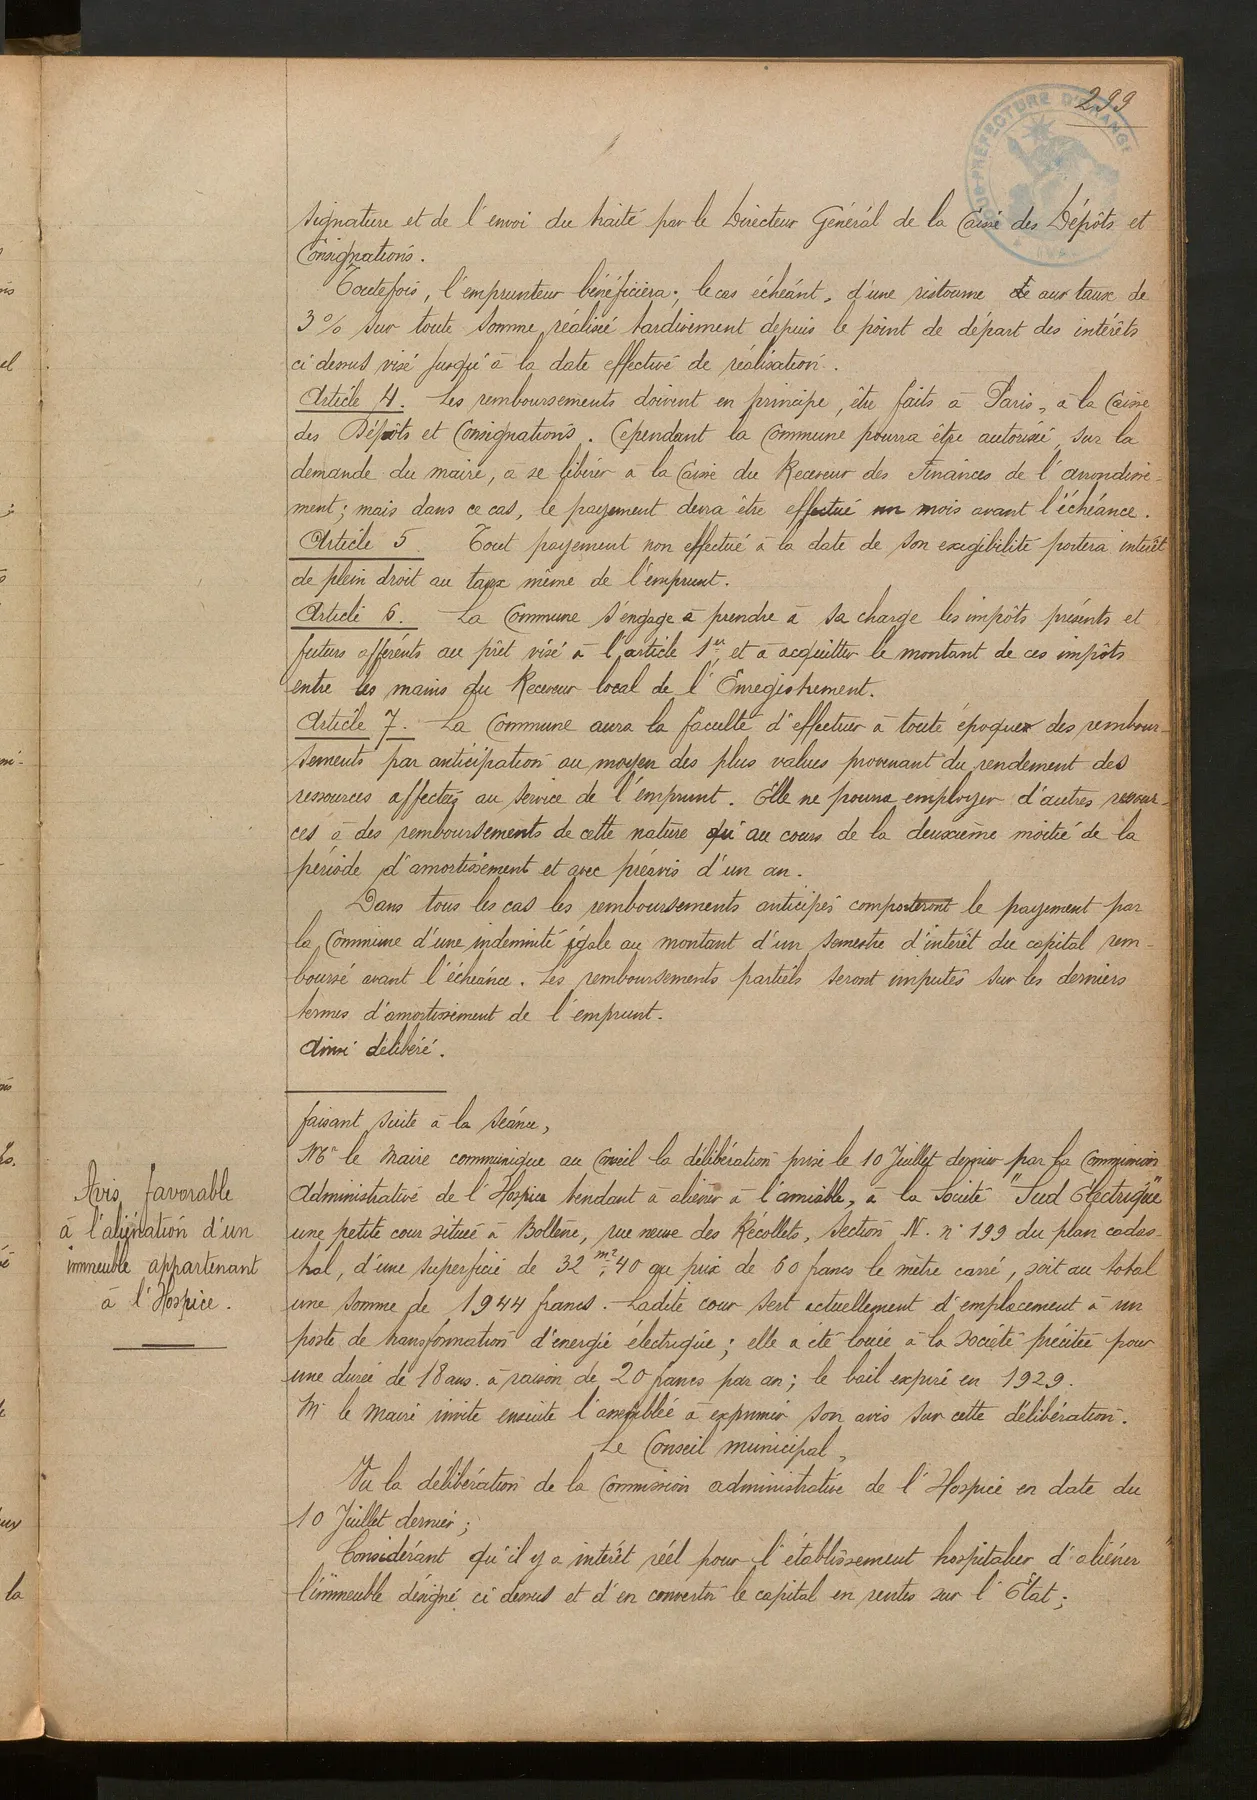 299
SOUS-PRÉFECTURE D'ORANGE
signature et de l'envoi du traité par le Directeur Général de la Caisse des Dépôts et
Consignations.
Toutefois, l'emprunteur bénéficiera, le cas échéant, d'une ristourne de aux taux de
3% sur toute somme réalisée tardivement depuis le point de départ des intérêts
ci dessus visé jusqu'à la date effective de réalisation.
Article 4. Les remboursements doivent en principe, être faits à Paris, à la Caisse
des Dépôts et Consignations. Cependant la Commune pourra être autorisée, sur la
demande du maire, a se libérer à la Caisse du Receveur des Finances de l'arrondisse-
ment; mais dans ce cas, le payement devra être effectué un mois avant l'échéance.
Article 5 Tout payement non effectué à la date de son exigibilité portera intérêt
de plein droit au taux même de l'emprunt.
Article 6. La Commune s'engage à prendre à sa charge les impôts présents et
futurs afférents au prêt visé à l'article 1er, et à acquitter le montant de ces impôts
entre les mains du Receveur local de l'Enregistrement.
Article 7. La Commune aura la faculté d'effectuer à toute époque des rembour-
sements par anticipation au moyen des plus values provenant du rendement des
ressources affectées au service de l'emprunt. Elle ne pourra employer d'autres ressour-
ces à des remboursements de cette nature qu'au cours de la deuxième moitié de la
période d'amortissement et avec préavis d'un an.
Dans tous les cas les remboursements anticipés comporteront le payement par
la Commune d'une indemnité égale au montant d'un semestre d'intérêt du capital rem-
boursé avant l'échéance. Les remboursements partiels seront imputés sur les derniers
termes d'amortissement de l'emprunt.
Ainsi délibéré.
faisant suite à la séance,
Avis favorable
à l'aliénation d'un
immeuble appartenant
à l'Hospice.
Mr le Maire communique au Conseil la délibération prise le 10 Juillet dernier par la Commission
Administrative de l'Hospice tendant à aliéner à l'amiable, à la Société "Sud Electrique"
une petite cour située à Bollène, rue neuve des Récollets, section N. n° 199 du plan cadas-
tral, d'une superficie de 32 m2, 40 au prix de 60 francs le mètre carré, soit au total
une somme de 1944 francs. Ladite cour sert actuellement d'emplacement à un
poste de transformation d'énergie électrique; elle a été louée à la société précitée pour
une durée de 18 ans à raison de 20 francs par an; le bail expire en 1929.
Mr le Maire invite ensuite l'assemblée à exprimer son avis sur cette délibération.
Le Conseil municipal,
Vu la délibération de la Commission administrative de l'Hospice en date du
10 Juillet dernier;
Considérant qu'il y a intérêt réel pour l'établissement hospitalier d'aliéner
l'immeuble désigné ci dessus et d'en convertir le capital en rentes sur l'Etat;